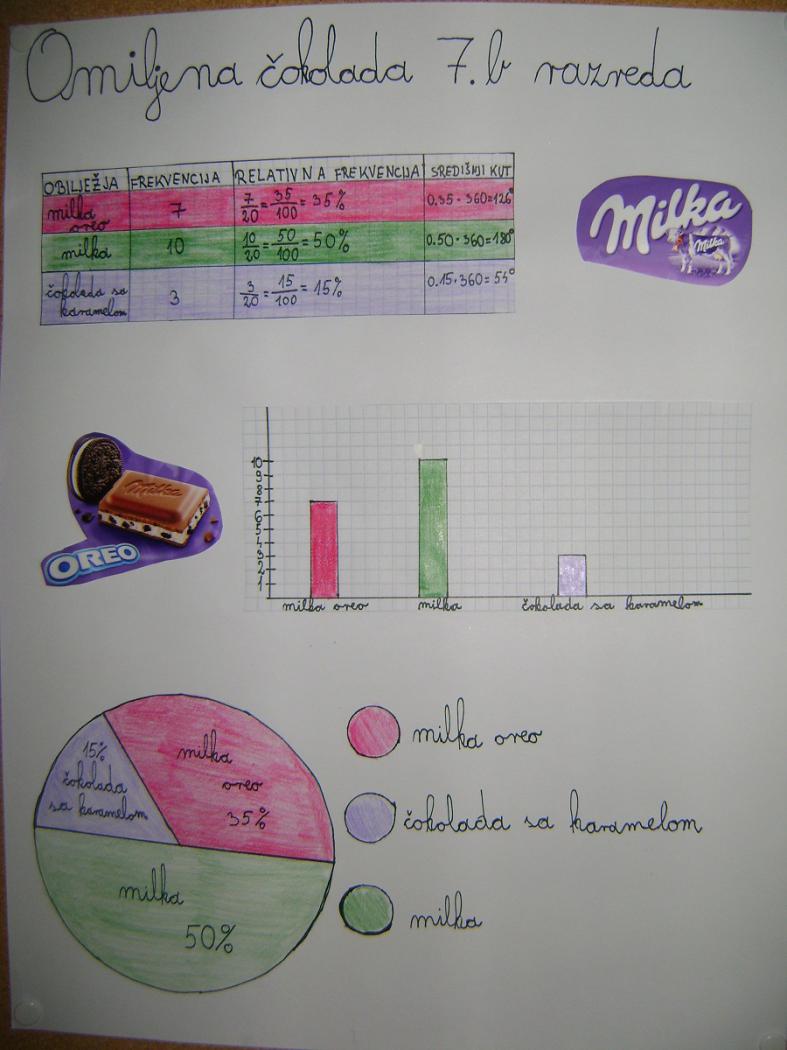 Omiljena čokolada 7.b razreda
OBILJEŽJA FREKVENCIJA RELATIVNA FREKVENCIJA SREDIŠNJI KUT
milka oreo 7 7/20 = 35/100 = 35% 0.35 · 360 = 126°
milka 10 10/20 = 50/100 = 50% 0.50 · 360 = 180°
čokolada sa karamelom 3 3/20 = 15/100 = 15% 0.15 · 360 = 54°
Milka
Milka
Milka
OREO
10
9
8
7
6
5
4
3
2
1
milka oreo milka čokolada sa karamelom
15%
čokolada
sa karamelom
milka
oreo
35%
milka
50%
milka oreo
čokolada sa karamelom
milka